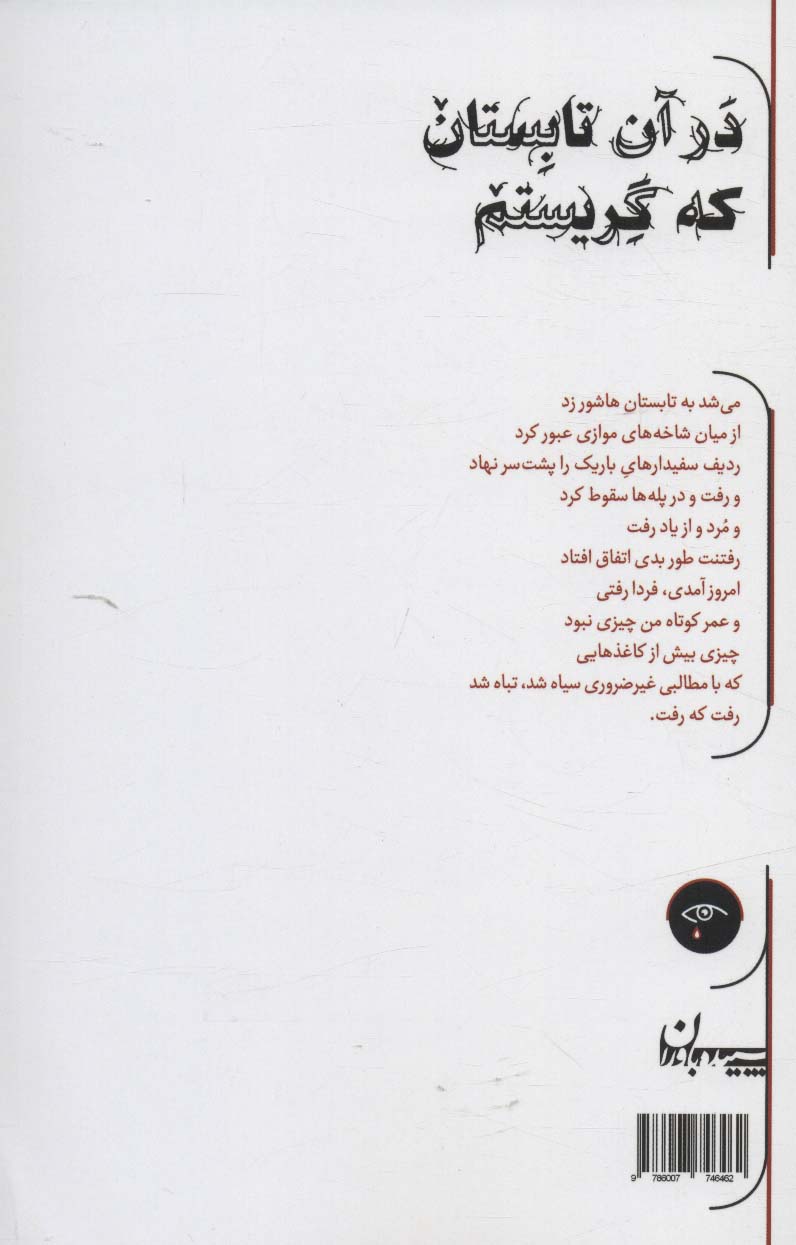 دَر آن تابِستان
که گِریستم
می‌شد به تابستان هاشور زد
از میان شاخه‌های موازی عبور کرد
ردیف سفیدارهایِ باریک را پشت‌سر نهاد
و رفت و در پله‌ها سقوط کرد
و مُرد و از یاد رفت
رفتنت طور بدی اتفاق افتاد
امروز آمدی، فردا رفتی
و عمر کوتاه من چیزی نبود
چیزی بیش از کاغذهایی
که با مطالبی غیرضروری سیاه شد، تباه شد
رفت که رفت.
سپیده باوران
9 786007 746462